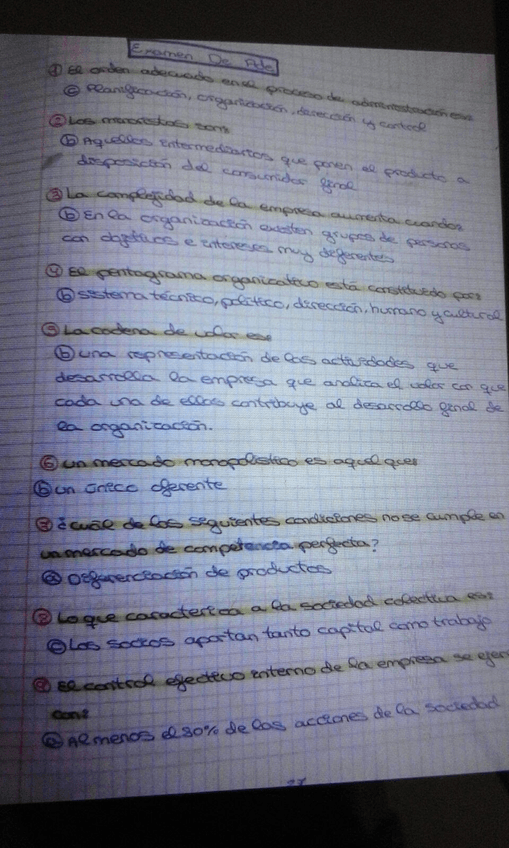 Examen De Ade
① El orden adecuado en el proceso de administración es:
ⓒ Planificación, organización, dirección y control
② Los minoristas son:
ⓑ Aquellos intermediarios que ponen el producto a
disposición del consumidor final
③ La complejidad de la empresa aumenta cuando:
ⓑ En la organización existen grupos de personas
con objetivos e intereses muy diferentes
④ El pentagrama organizativo está constituido por:
ⓑ sistema técnico, político, dirección, humano y cultural
⑤ La cadena de valor es:
ⓑ una representación de las actividades que
desarrolla la empresa que analiza el valor con que
cada una de ellas contribuye al desarrollo general de
la organización.
⑥ un mercado monopolístico es aquel que:
ⓑ un único oferente
⑦ ¿cuál de las siguientes condiciones no se cumple en
un mercado de competencia perfecta?
ⓐ Diferenciación de productos
⑧ Lo que caracteriza a la sociedad colectiva es:
ⓒ Los socios aportan tanto capital como trabajo
⑨ El control efectivo interno de la empresa se ejer
con:
Al menos el 30% de las acciones de la sociedad